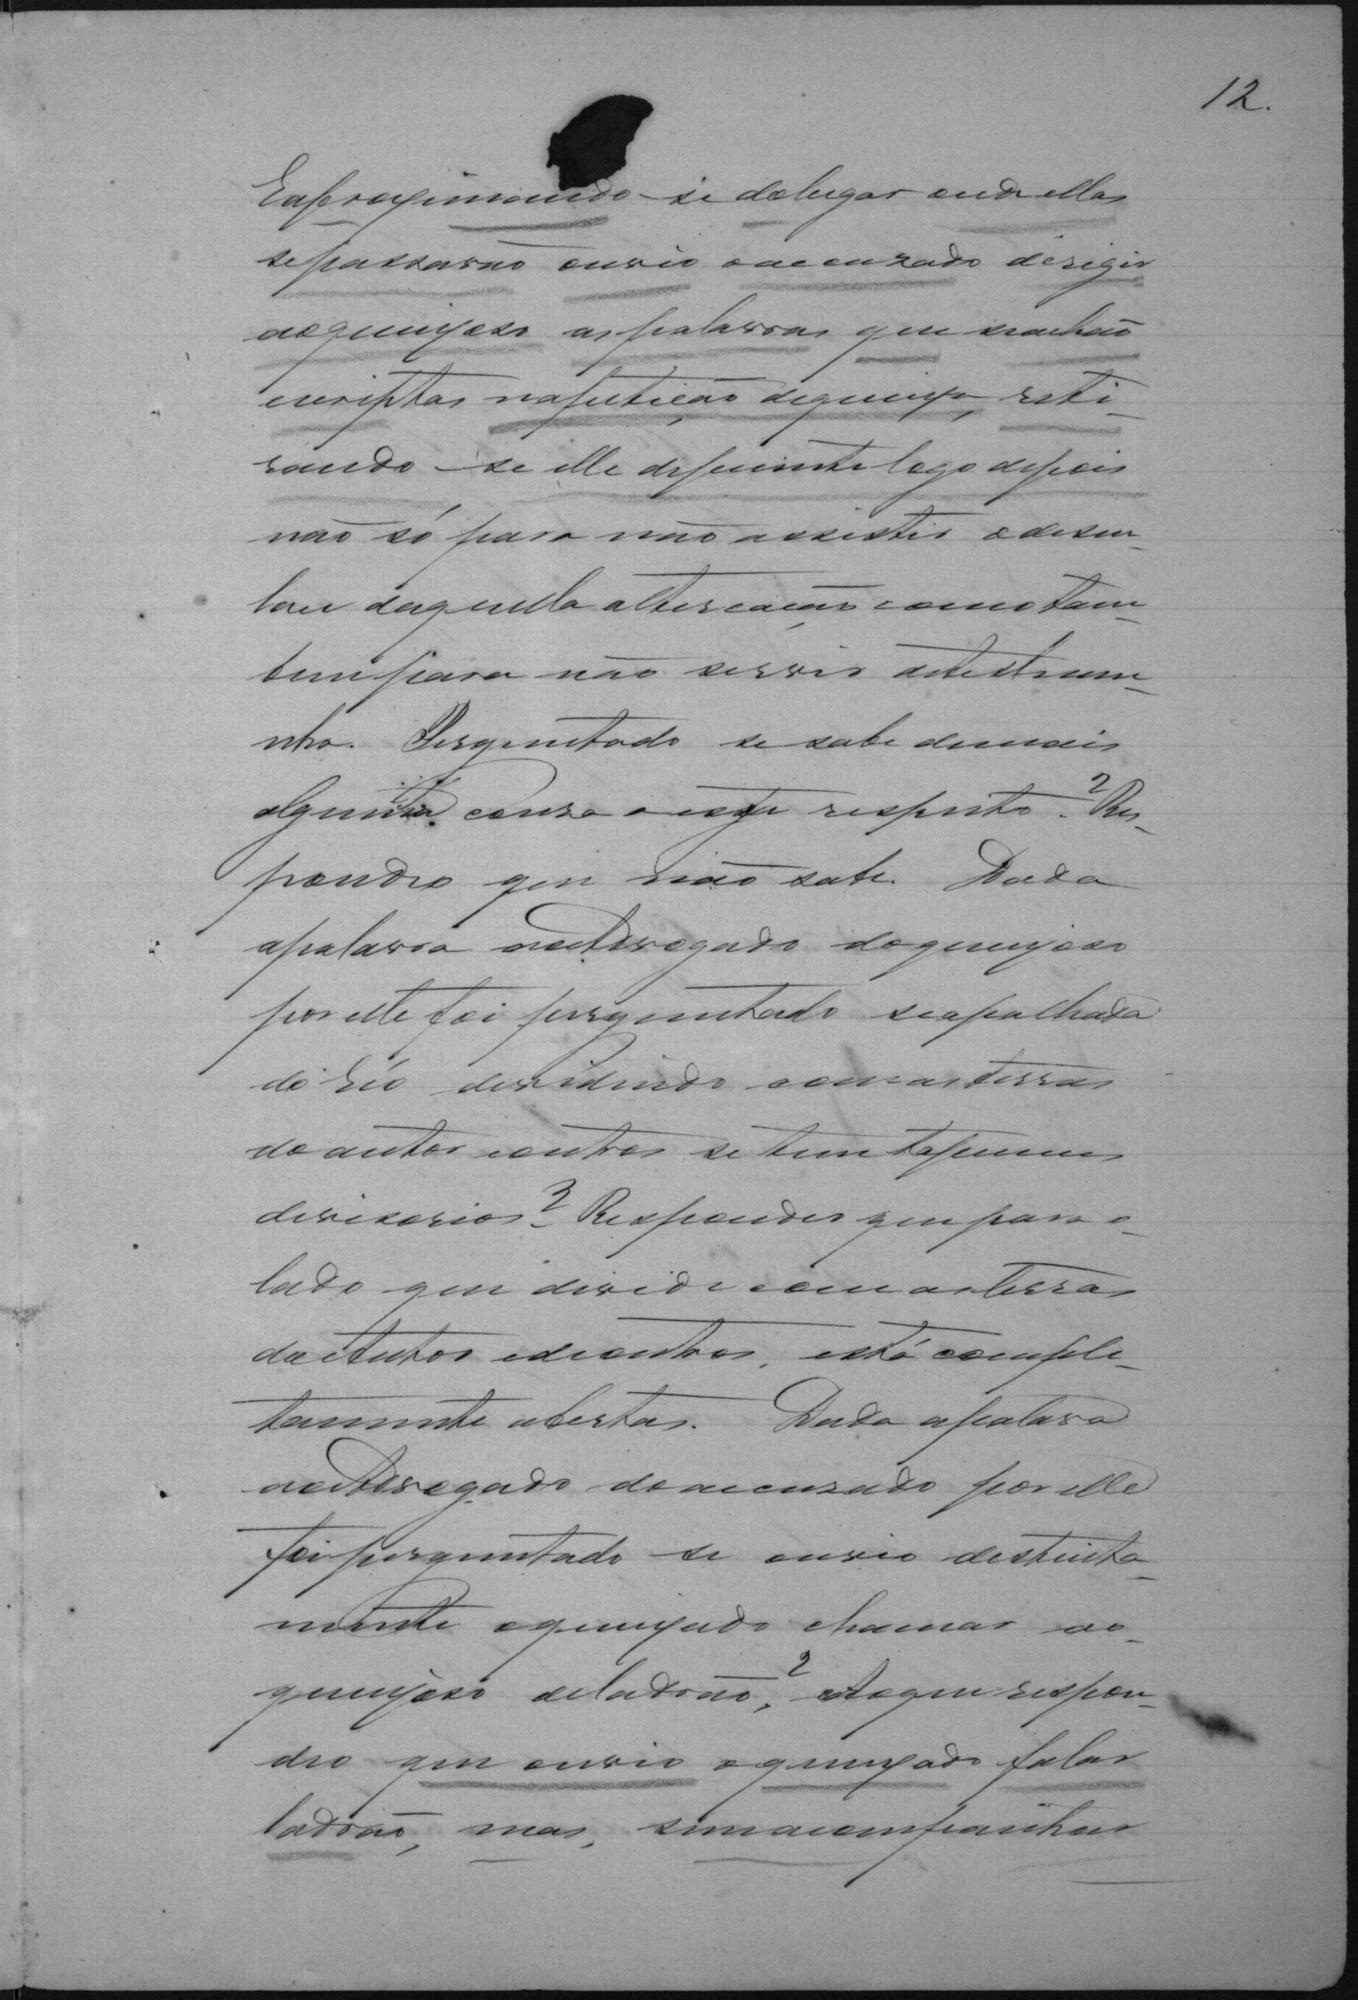 12.
Eaproximando-se dolugar onde ellas
sepassarão ouvio oaccuzado dirigir
aoqueixoso aspalavras que seachão
escriptas napetição dequeixa, reti-
rando-se elle depoente logo depois
não só para não assistir o desen-
lace daquella altercação como tam-
bem para não servir detestemu-
nha. Perguntado se sabe demais
alguma couza a este respeito? Res-
pondeo que não sabe. Dada
apalavra aoAdvogado doqueixoso
por elle foi perguntado se apalhada
do réo dividindo comasterras
doautor eoutros se tem tapumes
divisorios? Respondeo que para o
lado que divide comasterras
doAutor edeoutros, está comple-
tamente abertas. Dada apalavra
aoAdvogado doaccuzado por elle
foi perguntado se ouvio destincta-
mente oqueixado chamar ao
queixoso deladrão? Aoque respon-
deo que ouvio oqueixado falar
ladrão, mas, semacompanhar